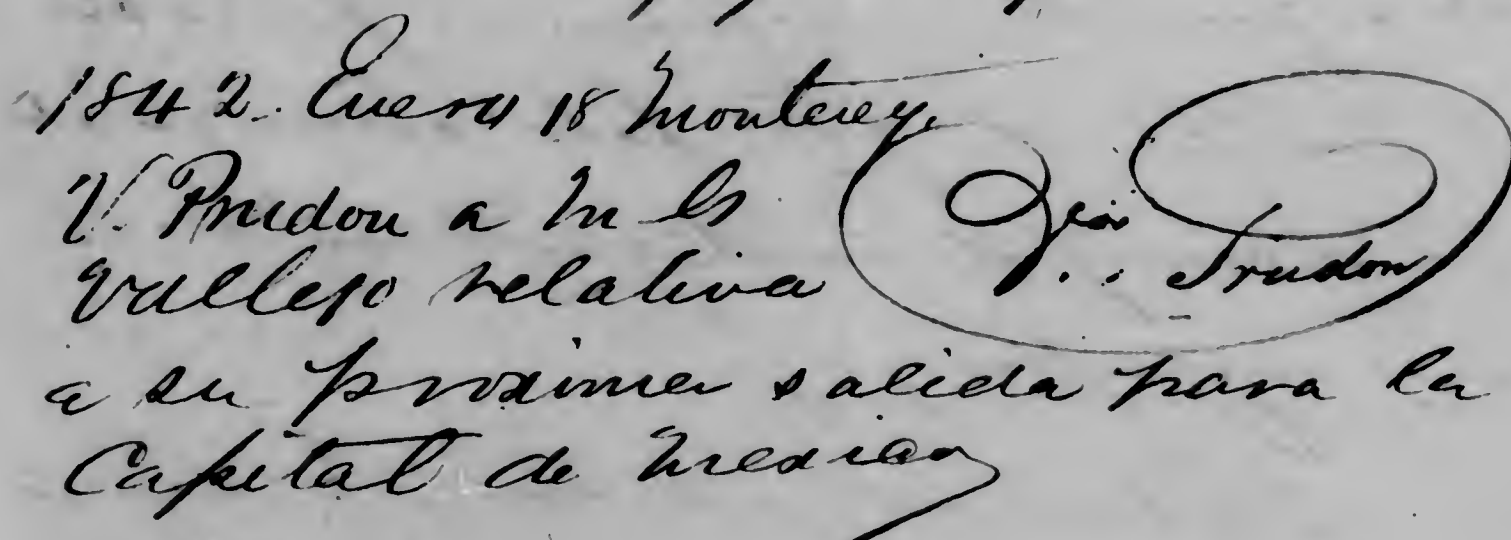 1842. Enero 18 Monterey.
V. Prudon a M G
Vallejo relativa
a su proxima salida para la
Capital de Mexico
Prudon